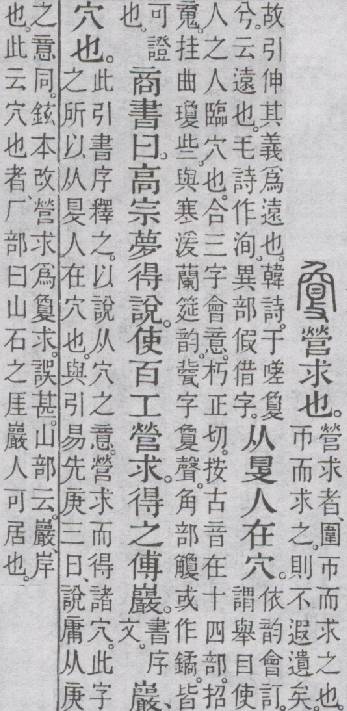 夐營求也。
營求者、圍帀而求之也。
帀而求之。則不遐遺矣。
故引伸其義爲遠也。韓詩。于嗟夐
兮。云遠也。毛詩作洵。異部假借字。
从𡕥人在穴。
依韵會訂。
謂舉目使
人之人臨穴也。合三字會意。朽正切。按古音在十四部。招
䰟。挂曲瓊些。與寒湲蘭筵韵。藑字夐聲。角部觼或作鐍。皆
可證
也。
商書曰。高宗夢得說。使百工營求。得之傅巖。
書序
文。
巖、
穴也。
此引書序釋之。以說从穴之意。營求而得諸穴。此字
之所以从𡕥人在穴也。與引易先庚三日、說庸从庚
之意同。鉉本改營求爲夐求。誤甚。山部云。巖、岸
也。此云穴也者厂部曰山石之厓巖人可居也。